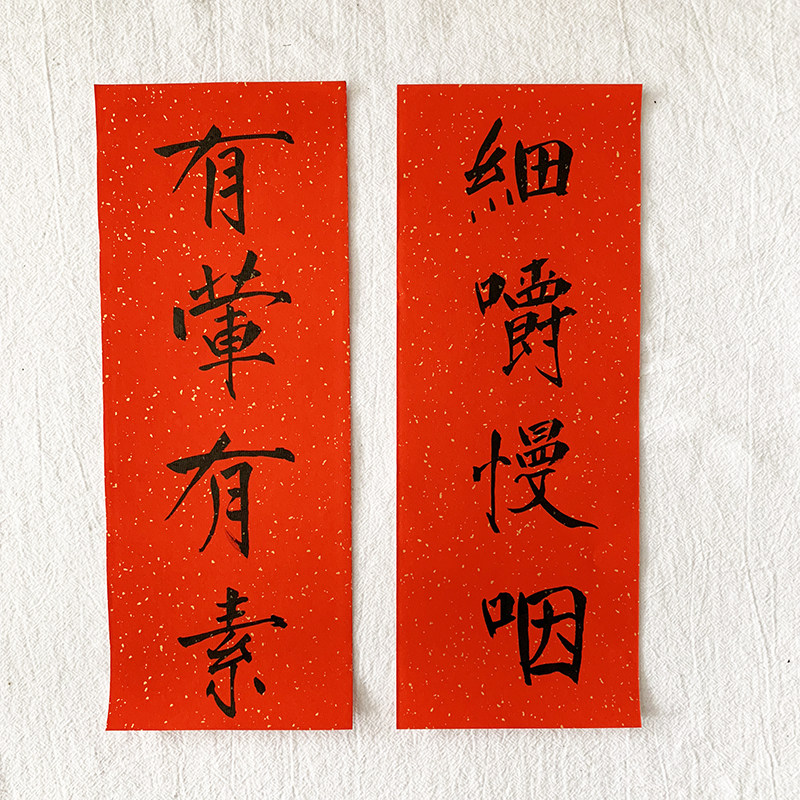 細嚼慢咽
有葷有素